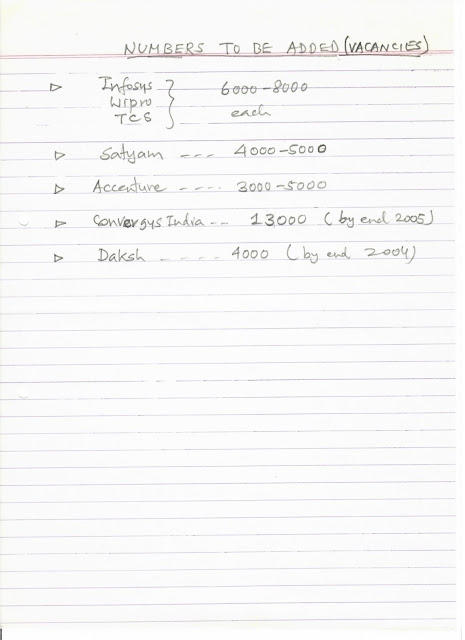 NUMBERS TO BE ADDED (VACANCIES)
▷ Infosys } 6000-8000
Wipro
TCS } each
▷ Satyam --- 4000-5000
▷ Accenture ---- 3000-5000
▷ Convergys India -- 13000 (by end 2005)
▷ Daksh ----- 4000 (by end 2004)